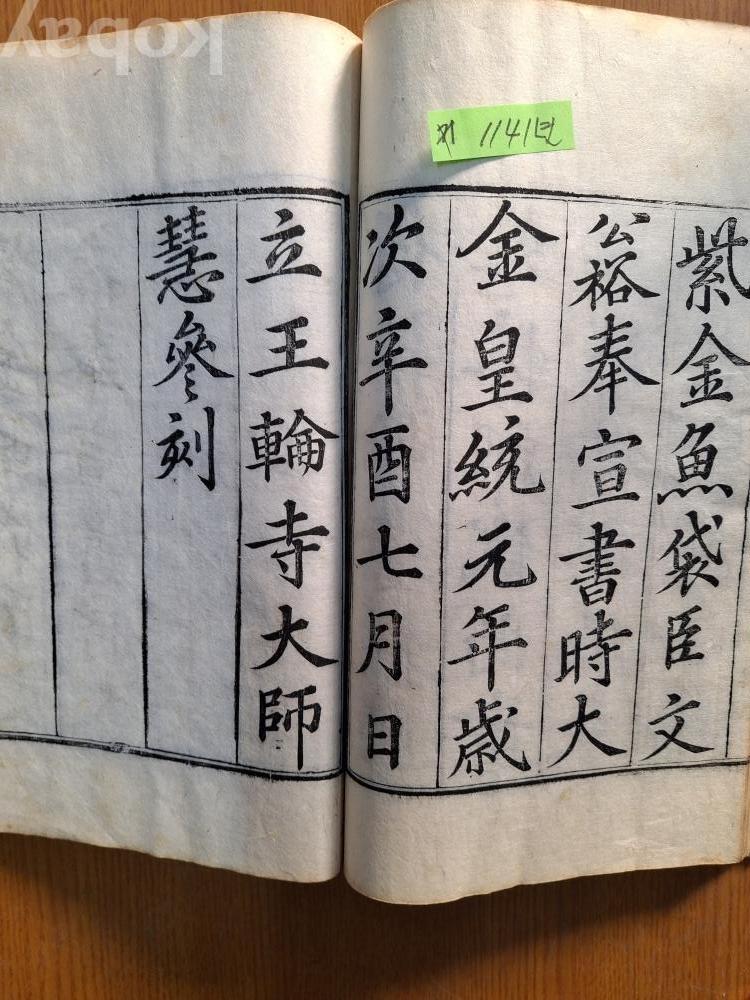 kobay
1141년
紫金魚袋臣文
公裕奉宣書時大
金皇統元年歲
次辛酉七月日
立王輪寺大師
慧參刻